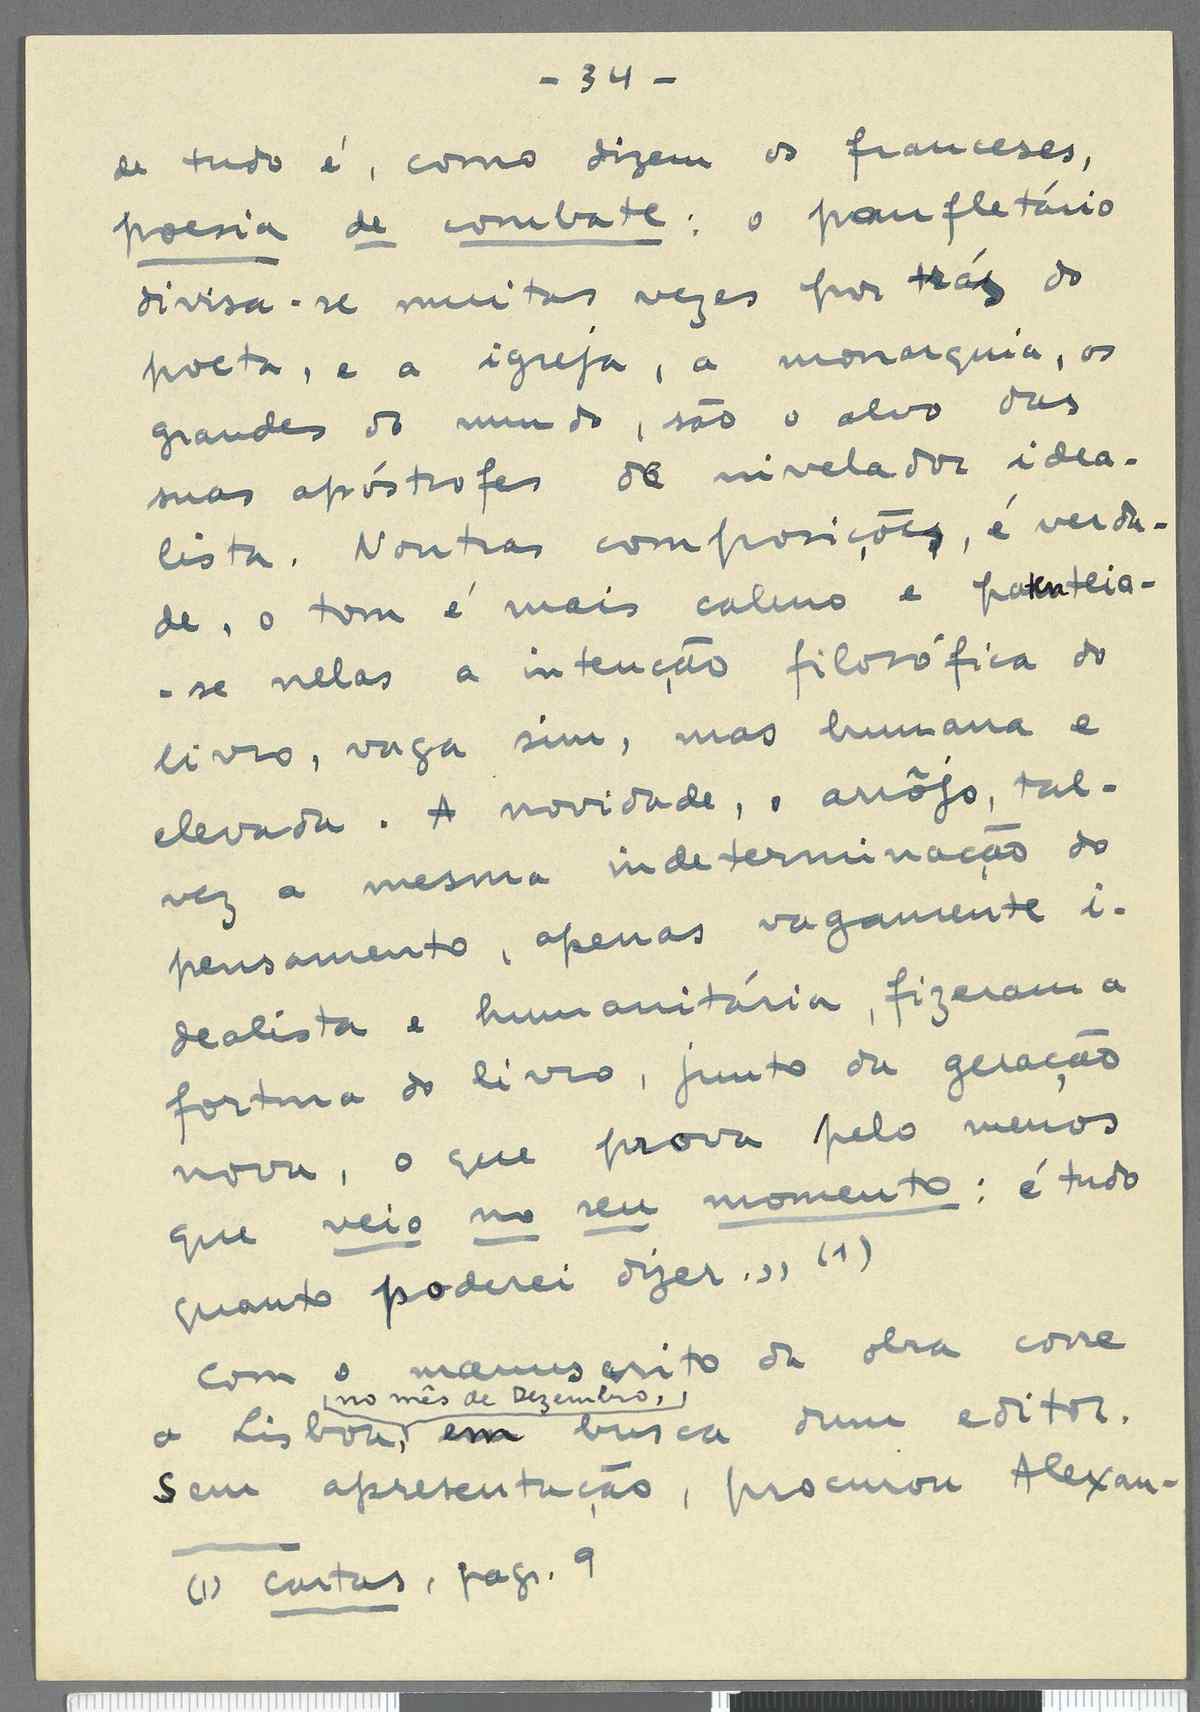 - 34 -
de tudo é, como dizem os franceses,
poesia de combate: o panfletário
divisa-se muitas vezes por trás do
poeta, e a igreja, a monarquia, os
grandes do mundo, são o alvo das
suas apóstrofes de nivelador idea-
lista. Noutras composições, é verda-
de, o tom é mais calmo e patenteia-
-se nelas a intenção filosófica do
livro, vaga sim, mas humana e
elevada. A novidade, o arrôjo, tal-
vez a mesma indeterminação do
pensamento, apenas vagamente i-
dealista e humanitária, fizeram a
fortuna do livro, junto da geração
nova, o que prova pelo menos
que veio no seu momento: é tudo
quanto poderei dizer.,, (1)
Com o manuscrito da obra corre
no mês de Dezembro,
a Lisboa, em busca dum editor.
Sem apresentação, procurou Alexan-
(1) Cartas, pag. 9